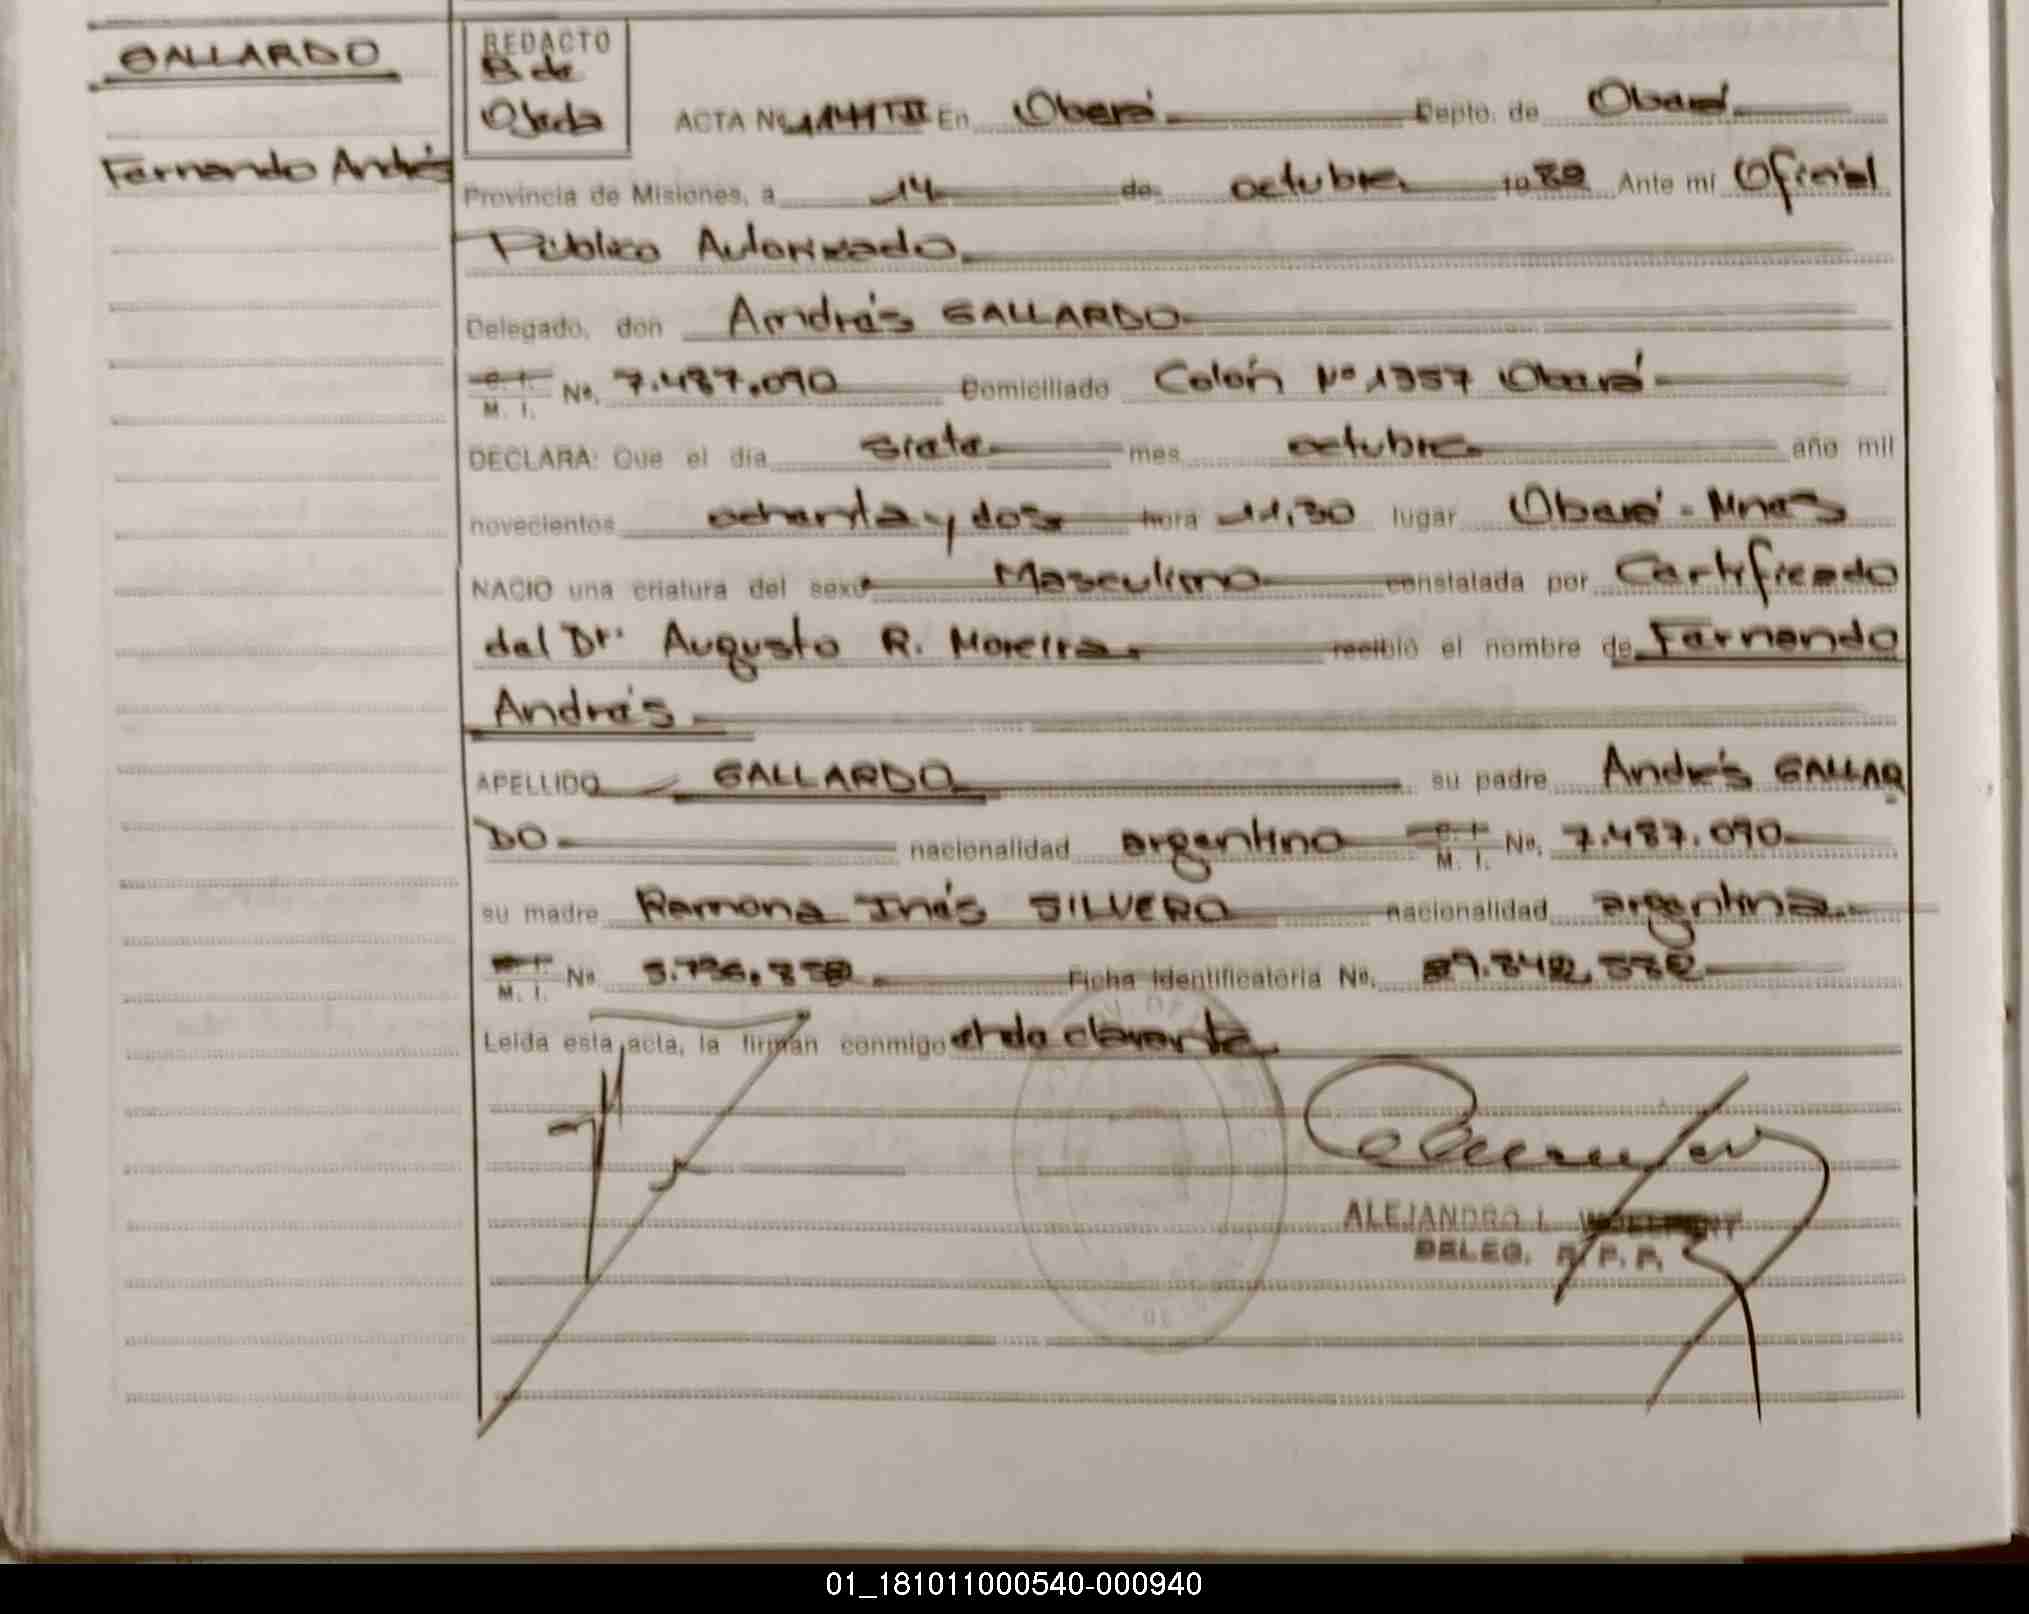 GALLARDO
Fernando Andrés
REDACTO
B de
Ojeda
ACTA Nº 1141 TºII En Oberá Depto. de Oberá
Provincia de Misiones, a 14 de octubre 1982 Ante mí Oficial
Público Autorizado
Delegado, don Andrés GALLARDO
C. I. M. I. Nº. 7.487.090 Domiciliado Colón Nº 1357 Oberá
DECLARA: Que el día siete mes octubre año mil
novecientos ochenta y dos hora 11,30 lugar Oberá - Mnes
NACIO una criatura del sexo Masculino constatada por Certificado
del Dr. Augusto R. Moreira recibió el nombre de Fernando
Andrés
APELLIDO GALLARDO su padre Andrés GALLAR
DO nacionalidad argentino C. I. M. I. Nº. 7.487.090
su madre Ramona Inés SILVERO nacionalidad argentina
C. I. M. I. Nº Ficha Identificatoria Nº.
Leída esta acta, la firman conmigo el declarante
ALEJANDRO L.
DELEG. R. P. P.
01_181011000540-000940